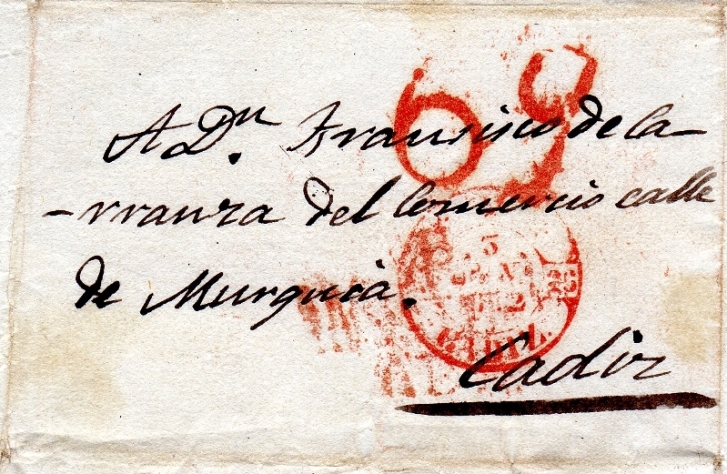 6 9
A Dn. Fransisco de la-
-rranza del Comercio calle
de Murguia.
3
Cadiz